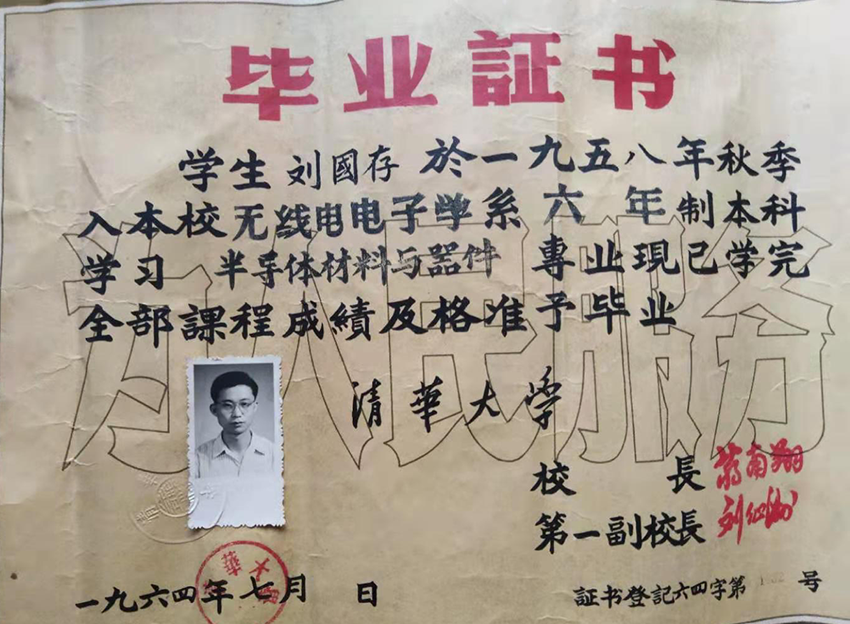 毕业証书
学生 刘國存 於一九五八年秋季
入本校无线电电子学系 六 年制本科
学习 半导体材料与器件 專业現已学完
全部課程成績及格准予毕业
为人民服务
清華大学
校 長 蒋南翔
第一副校長 刘仙洲
一九六四年七月 日
証书登記六四字第 号